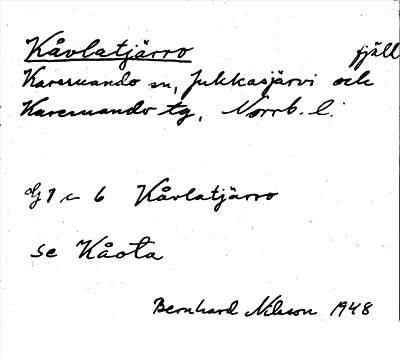 Kåvlatjärro fjäll
Karesuando sn, Jukkasjärvi och
Karesuando tg, Norrb. l.
1 c 6 Kåvlatjärro
se Kåota
Bernhard Nilsson 1948